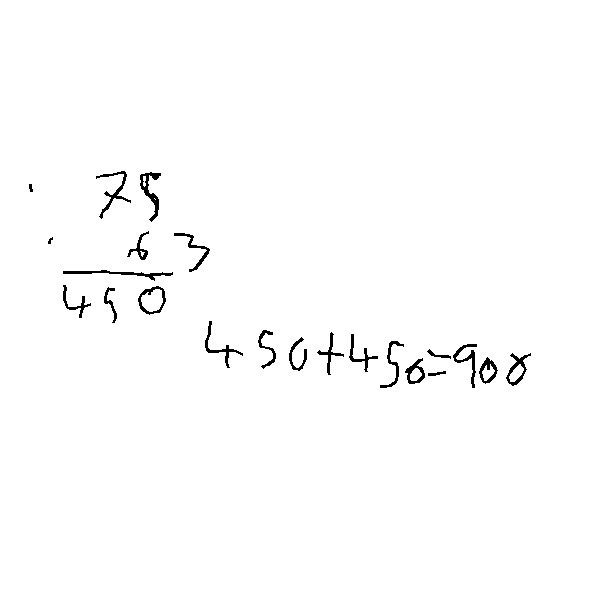 75
63
450
450+450=900